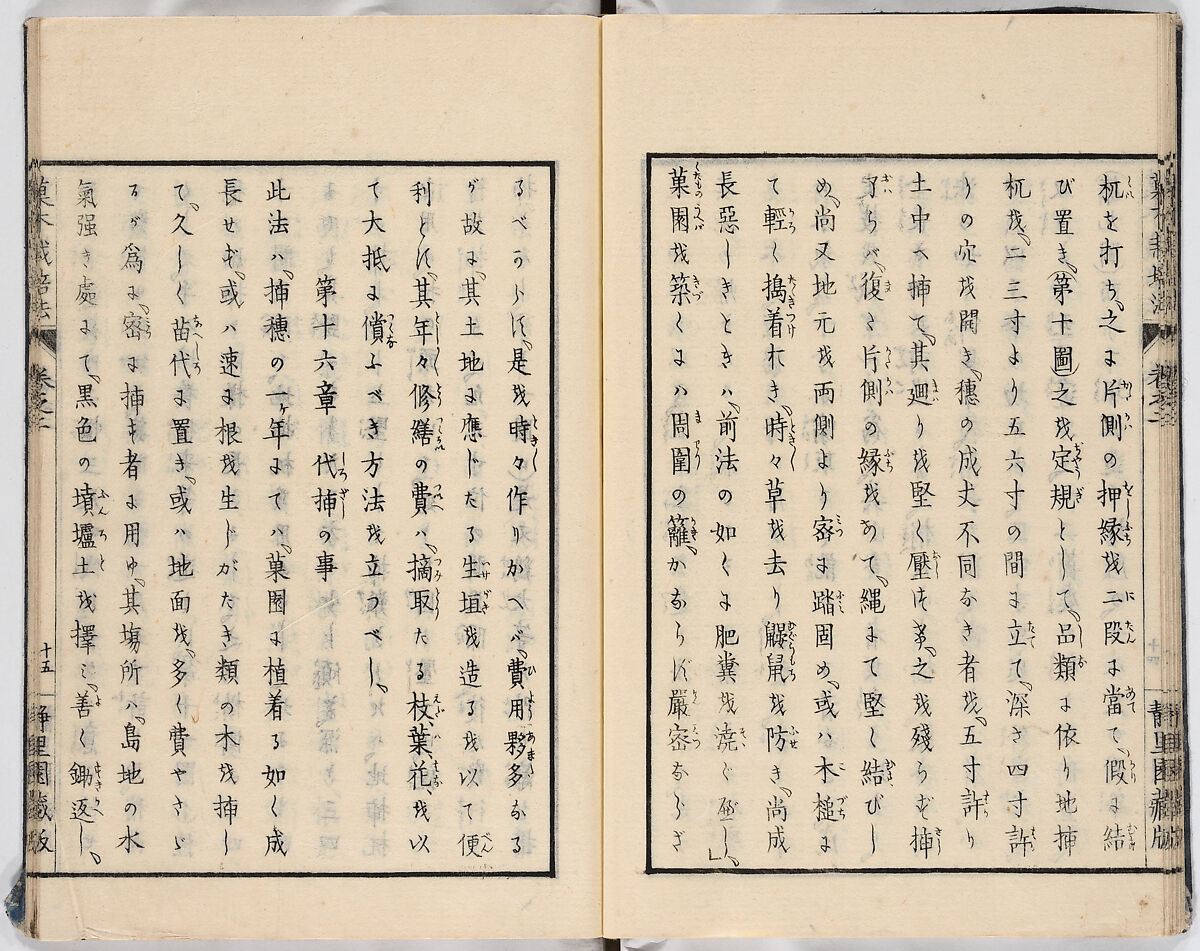 杭を打ち、之に片側の押縁を二段に當て、假に結
び置き、第十圖之を定規として、品類に依り地挿
杭を、二三寸より五六寸の間に立て、深さ四寸許
りの穴を開き、穗の成丈不同なき者を、五寸許り
土中へ挿て、其廻りを堅く壓せ着、之を殘らず挿
了らバ、復た片側の縁をあて、縄にて堅く結びし
め、尚又地元を両側より密に踏固め、或ハ木槌に
て輕く搗着れき、時々草を去り鼹鼠を防き、尚成
長惡しきときハ、前法の如くに肥糞を澆ぐ可し、」
菓園を築くにハ周圍の籬、かならず嚴密ならざ
るべからず、是を時々作りかへバ、費用夥多なる
が故に、其土地に應じたる生垣を造るを以て便
利とす、其年々修繕の費ハ、摘取たる枝、葉、花、を以
て大抵に償ふべき方法を立つべし、
第十六章 代挿の事
此法ハ、挿穗の一ヶ年にてハ、菓園に植着る如く成
長せず、或ハ速に根を生じがたき類の木を挿し
て、久しく苗代に置き、或ハ地面を、多く費やさゞ
るが爲に、密に挿す者に用ゆ、其塲所ハ、島地の水
氣强き處にて、黒色の墳壚土を擇ミ、善く鋤返し、
菓木栽培法 卷之二 十五 靜里園藏版